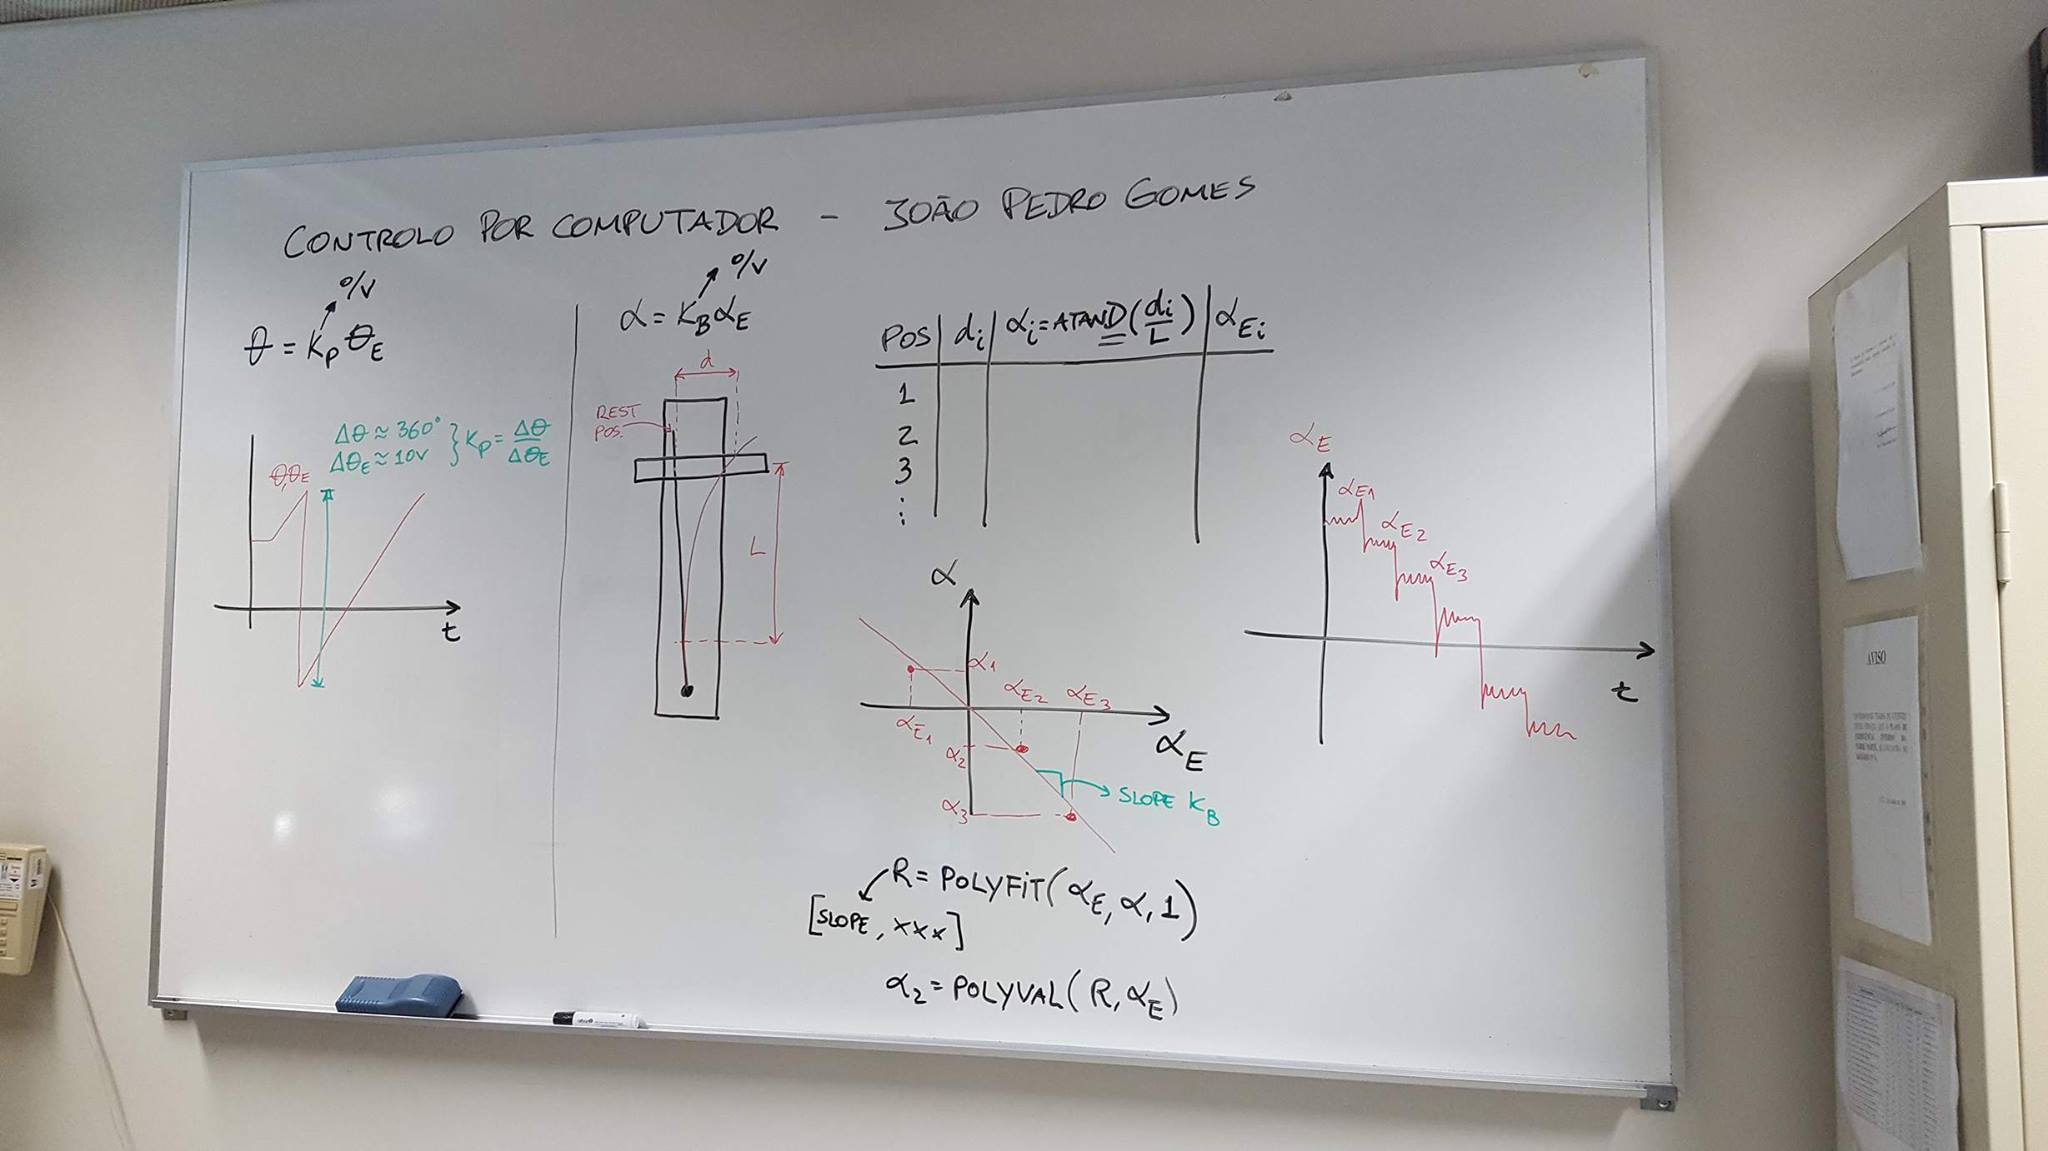 CONTROLO POR COMPUTADOR - JOÃO PEDRO GOMES
º/V
θ = Kp θE
Δθ ≈ 360°
ΔθE ≈ 10V
} Kp = Δθ/ΔθE
θ, θE
t
º/V
α = KB αE
d
REST
POS.
L
POS | di | αi = ATAND(di/L) | αEi
1
2
3
⋮
α
α1
αE2
αE3
αE1
αE
α2
α3
SLOPE KB
R = POLYFIT(αE, α, 1)
[SLOPE, xxx]
α2 = POLYVAL(R, αE)
αE
αE1
αE2
αE3
t
AVISO